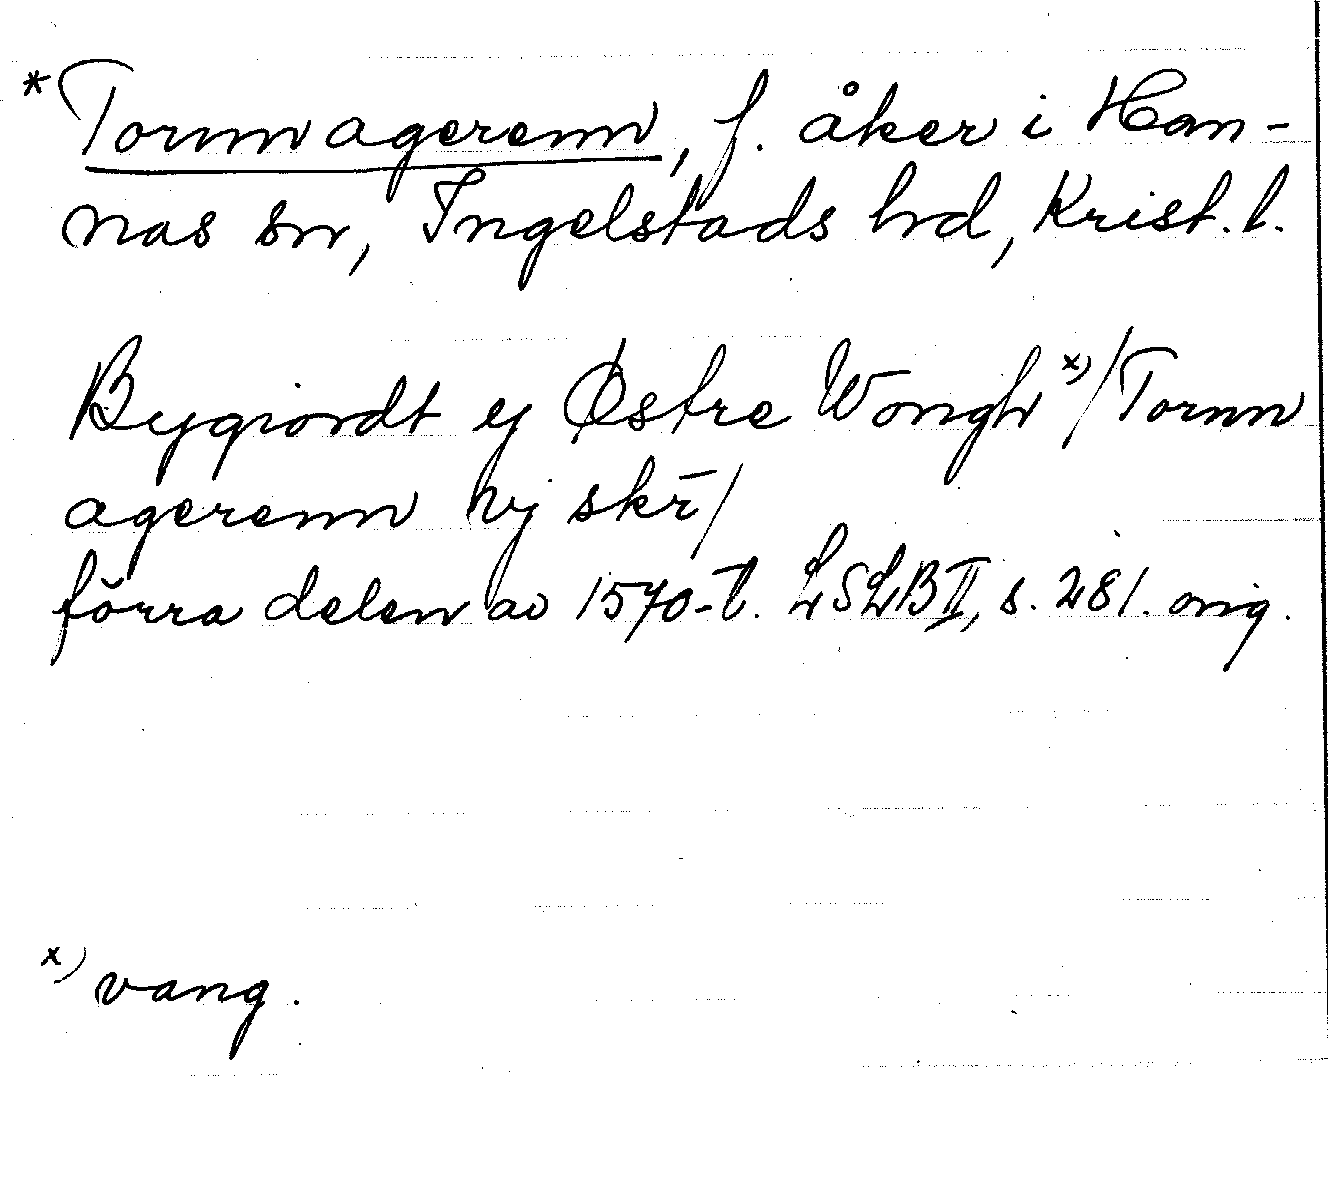 *Tornn agerenn, f. åker i Han-
nas sn, Ingelstads hd, Krist. l.
Bygiordt ej Østre Wongh x)/Tornn
agerenn hvj skr̄/
förra delen av 1570-t. LSLB II, s. 281. orig.
x) vang.